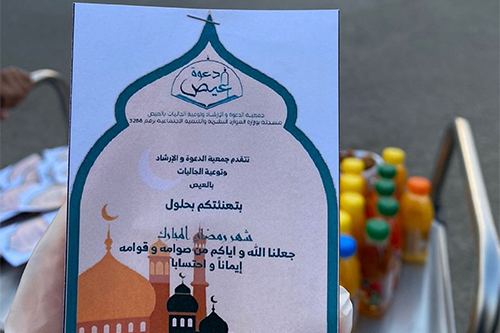 دعوة
العيص
جمعية الدعوة و الإرشاد وتوعية الجاليات بالعيص
مسجلة بوزارة الموارد البشرية والتنمية الاجتماعية برقم 3288
تتقدم جمعية الدعوة و الإرشاد
وتوعية الجاليات
بالعيص
بتهنئتكم بحلول
شهر رمضان المبارك
جعلنا الله و اياكم من صوامه و قوامه
إيمانا و احتسابا